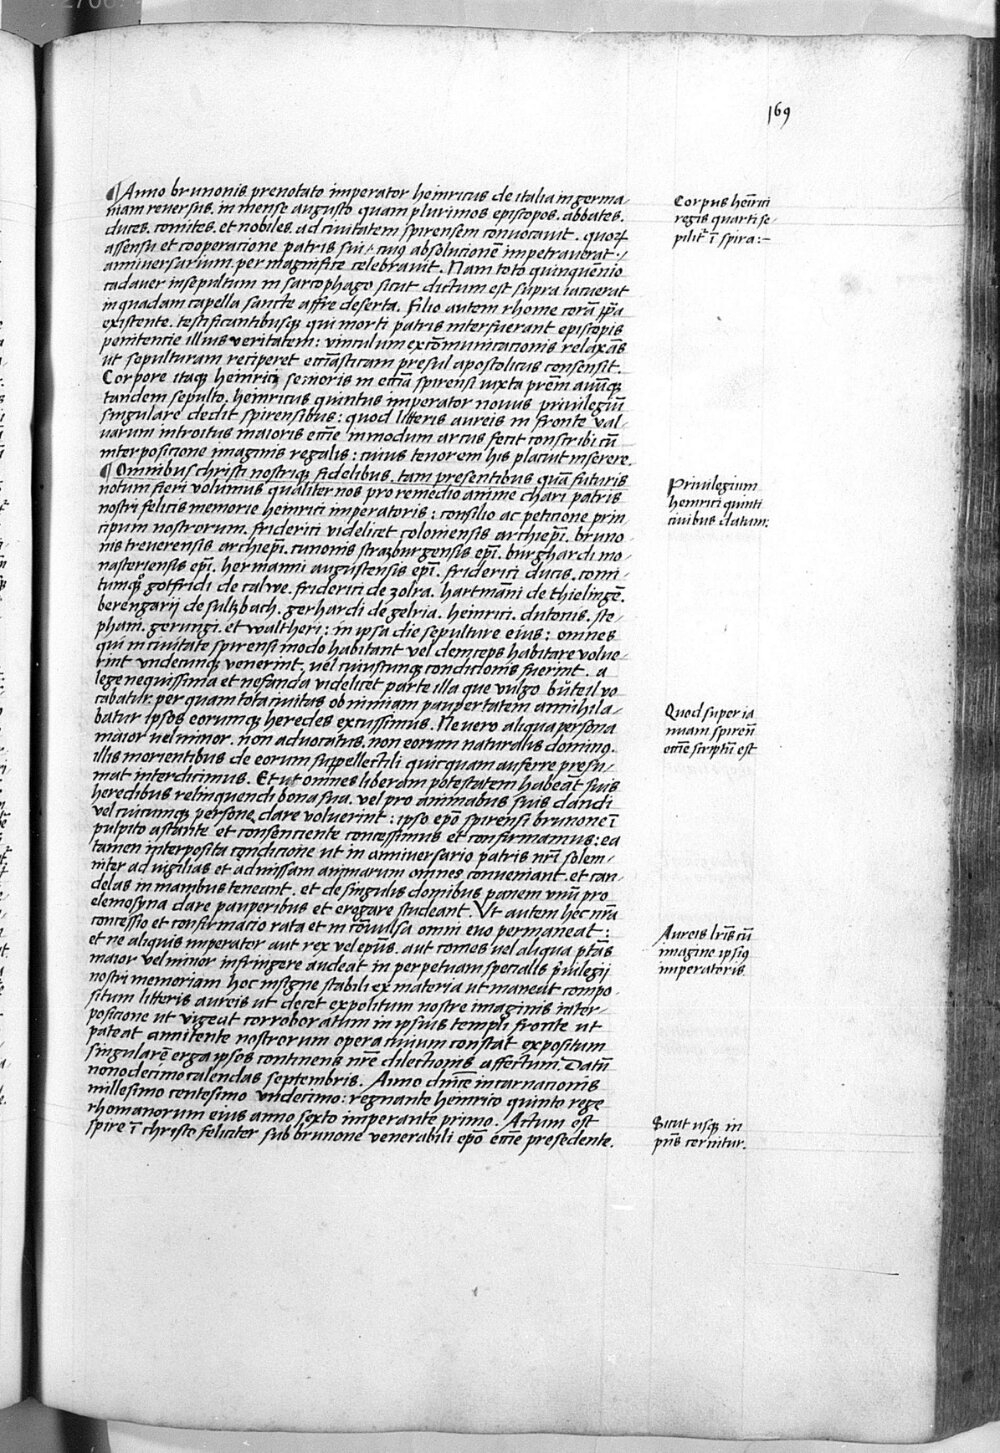 169
¶ Anno brunonis prenotato imperator heinricus de italia in germa-
niam reversus. in mense augusto quam plurimos episcopos. abbates.
duces. comites. et nobiles. ad civitatem spirensem convocavit. quoꝝ
assensu et cooperacione patris sui / cuiꝰ absolucionē impetraverat /
anniversarium. per magnifice celebravit. Nam toto quinquēnio
cadaver insepultum in sarcophago sicut dictum est supra iacuerat
in quadam capella sancte affre deserta. Filio autem rhome corā pp̄a
existente. testificantibusqꝫ qui morti patris interfuerant episcopis
penitencie illius veritatem: vinculum excōmunicacionis relaxās
ut sepulturam reciperet ecc̄iasticam presul apostolicus consensit.
Corpore itaqꝫ heinrici senioris in ecc̄ia spirensi iuxta prēm avūqꝫ
tandem sepulto. heinricus quintus imperator novus privilegiū
singulare dedit spirensibus: quod litteris aureis in fronte val-
varum introitus maioris ecc̄ie in modum arcus fecit conscribi cū
interposicione imaginis regalis: cuius tenorem his placuit inserere.
¶ Omnibus christi nostrisqꝫ fidelibus. tam presentibus quā futuris
notum fieri volumus qualiter nos pro remedio anime chari patris
nostri felicis memorie heinrici imperatoris: consilio ac peticione prin
cipum nostrorum. friderici videlicet coloniensis archiepī. bruno-
nis treverensis archiepī. cunonis strazburgensis epī. burghardi mo-
nasteriensis epī. hermanni augustensis epī. friderici ducis. comi-
tumqꝫ gotfridi de calwe. friderici de zolra. hartmāni de thielingē.
berengarij de sulzbach. gerhardi de gelria. heinrici. dutonis. ste-
phani. gerungi. et waltheri: in ipsa die sepulture eius: omnes
qui in civitate spirensi modo habitant vel deinceps habitare volue-
rint undecunqꝫ venerint. vel cuiuscunqꝫ condicionis fuerint. a
lege nequissima et nefanda videlicet parte illa que vulgo būteil vo
cabatur. per quam tota civitas ob nimiam paupertatem annihila-
batur ipsos eorumqꝫ heredes excussimus. Ne vero aliqua persona
maior vel minor. non advocatus. non eorum naturalis dominꝰ.
illis morientibus de eorum suppellectili quicquam auferre presu-
mat interdicimus. Et ut omnes liberam potestatem habeāt suis
heredibus relinquendi bona sua. vel pro animabus suis dandi
vel cuicumqꝫ persone dare voluerint: ipso epō spirensi brunone ī
pulpito astante et consenciente concessimus et confirmamus: ea
tamen interposita condicione ut in anniversario patris nrī solem-
niter ad vigilias et ad missam animarum omnes conveniant. et can-
delas in manibus teneant. et de singulis domibus panem unū pro
elemosyna dare pauperibus et erogare studeant. Ut autem hec nrā
concessio et confirmacio rata et in cōvulsa omni evo permaneat:
et ne aliquis imperator aut rex vel epūs. aut comes vel aliqua ptās
maior vel minor infringere audeat in perpetuam specialis privilegij
nostri memoriam hoc insigne stabili ex materia ut maneat compo-
situm litteris aureis ut decet expolitum nostre imaginis inter-
posicione ut vigeat corroboratum in ipsius templi fronte ut
pateat annitente nostrorum opera civium constat expositum
singularē erga ipsos continens nrē dilectionis affectum. Datū
nonodecimo calendas septembris. Anno dnīce incarnacionis
millesimo centesimo undecimo: regnante heinrico quinto rege
rhomanorum eius anno sexto imperante primo. Actum est
spire ī christo feliciter sub brunone venerabili epō ecc̄ie presedente.
Corpus heinrici
regis quarti se-
pilit̄ ī spira:-
Privilegium
heinrici quinti
civibus datum:
Quod super ia
nuam spirenn̄
ecc̄ie scriptū est
Aureis lrīs cū
imagine ipsiꝰ
imperatoris
Sicut usqꝫ in
pn̄s cernitur.